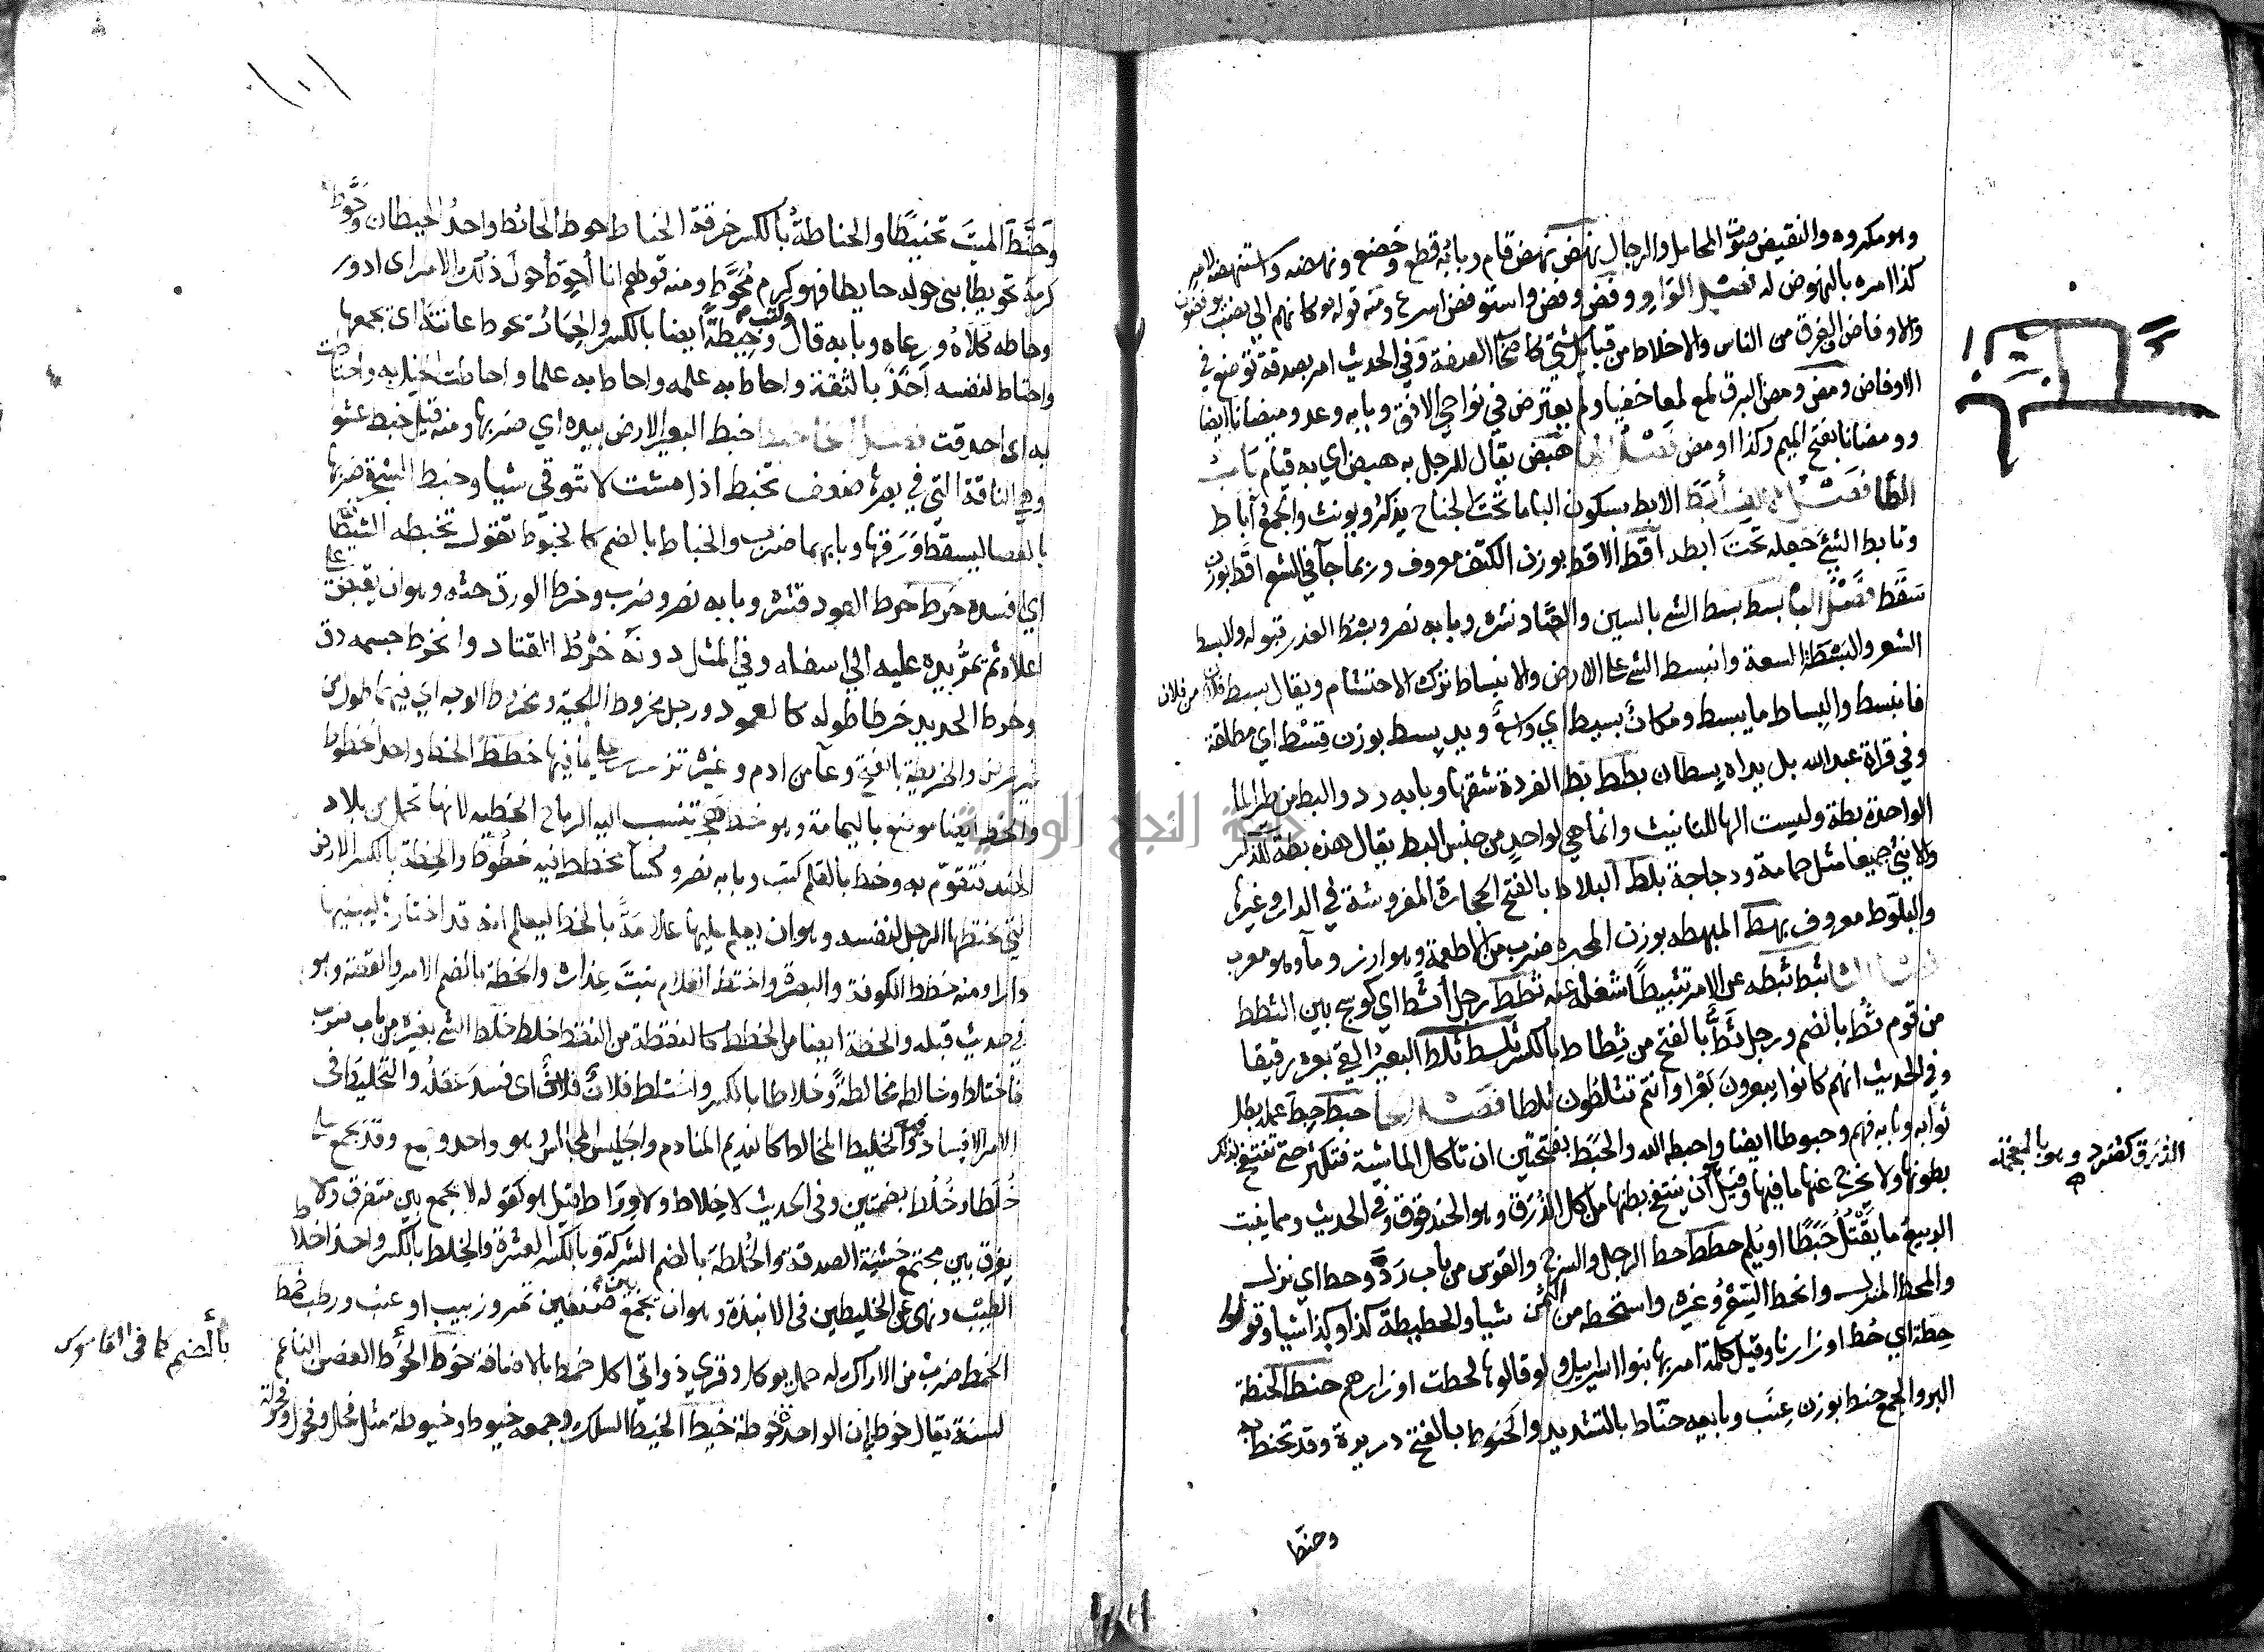 وهو مكروه والنقيض صوت المحامل والرحال نهض نهض قام وبابه قطع وخضع ونهضه واستنهضه لامر
كذا امره بالنهوض له فصل الواو وفض وفض واستوفض اسرع ومنه قوله كانهم الى نصب يوفضون
والاوفاض الفرق من الناس والاخلاط من قبائل شتى كاصحاب الصفة وفي الحديث امر بصدقة توضع في
الاوفاض ومض ومض البرق لمع لمعا خفيا ولم يعترض في نواحي الافق وبابه وعد وميضا ايضا
وومضانا بفتح الميم وكذا اومض فصل الها هيض يقال للرجل به هيض اي به قيام باب
الطا فصل الالف أبط الابط بسكون البا ما تحت الجناح يذكر ويونث والجمع اباط
وتابط الشئ جعله تحت ابطه اقط الاقط بوزن الكتف معروف وربما جا في الشعر اقط بوزن
سقط فصل البا بسط بسط الشئ بالسين والصاد نشره وبابه نصر وبسط العذر قبوله والبسط
الشعر والبسطة السعة وانبسط الشئ على الارض والانبساط ترك الاحتشام ويقال بسط فلان من فلان
فانبسط والبساط ما يبسط ومكان بسيط اي واسع ويد بسط بوزن قسط اي مطلقة
وفي قراة عبد الله بل يداه بسطان بطط بط القرحة شقها وبابه رد والبط من طير الما
الواحدة بطة وليست الها للتانيث وانما هي لواحد من جنس البط يقال هذه بطة للذكر
والانثى جميعا مثل حمامة ودجاجة بلط البلاط بالفتح الحجارة المفروشة في الدار وغيرها
والبلوط معروف بهط البهطه بوزن المجره ضرب من الاطعمة وهو ارز وما وهو معرب
فصل الثا ثبط ثبطه عن الامر تثبيطا شغله عنه ثطط رجل أثط اي كوسج بين الثطط
من قوم ثط بالضم ورجل ثط بالفتح من ثطاط بالكسر ثلط ثلط البعير القى بعره رقيقا
وفي الحديث انهم كانوا يبعرون بعرا وانتم تثلطون ثلطا فصل الحا حبط حبط عمله بطل
ثوابه وبابه فهم وحبوطا ايضا واحبطه الله والحبط بفتحتين ان تاكل الماشية فتكثر حتى تنتفخ لذلك
بطونها ولا يخرج عنها ما فيها وقيل ان ينتفخ بطنها من اكل الذرق وهو الحندقوق وفي الحديث ومما ينبت
الربيع ما يقتل حبطا او يلم حطط حط الرحل والسرج والقوس من باب رد وحط اي نزل
والمحط المنزل وانحط السعر وغيره واستحطه من الثمن شيا والحطيطة كذا وكذا شيا وقولوا
حطة اي حط اوزارنا وقيل كلمة امر بها بنوا اسراييل لو قالوها لحطت اوزارهم حنط الحنطة
البر والجمع حنط بوزن عنب وبايعه حناط بالتشديد والحنوط بالفتح دريرة وقد تحنط به
وحنط
الذرق كصرد وهو بالمعجمه
١٠١
وحنط الميت تحنيطا والحناطة بالكسر حرفة الحناط حوط الحائط واحد الحيطان وحوط
كرمه تحويطا بنى حوله حايطا فهو كرم محوط ومنه قولهم انا أحوط حول ذلك الامر اي ادور
وحاطه كلاه ورعاه وبابه قال وكتب وحيطة ايضا بالكسر والحمار يحوط عانته اي يجمعها
واحتاط لنفسه اخذ بالثقة واحاط به علمه واحاط به علما واحاطت الخيل به واحتاطت
به اي احدقت فصل الخا خبط خبط البعير الارض بيده اي ضربها ومنه قيل خبط عشوا
وهي الناقة التي في بصرها ضعف تخبط اذا مشت لا تتوقى شيا وخبط الشجرة ضربها
بالعصا ليسقط ورقها وبابهما ضرب والخباط بالضم كالجنون تقول تخبطه الشيطان
اي افسده خرط خرط العود قشره وبابه نصر وضرب وخرط الورق حته وهو ان يقبض على
اعلاه ثم يمر يده عليه الى اسفله وفي المثل دونه خرط القتاد وانخرط جسمه دق
وخرط الحديد خرطا طوله كالعمود ورجل مخروط اللحية ومخروط الوجه اي فيهما طول من
غير عرض والخريطة بالفتح وعا من ادم وغيره تشرج على ما فيها خطط الخط واحد الخطوط
والخط ايضا موضع باليمامة وهو خط هجر تنسب اليه الرماح الخطيه لانها تحمل من بلاد
الهند فتقوم به وخط بالقلم كتب وبابه نصر وكسا مخطط فيه خطوط والخطة بالكسر الارض
التي يختطها الرجل لنفسه وهو ان يعلم عليها علامة بالخط ليعلم انه قد اختارها ليبنيها
دارا ومنه خطط الكوفة والبصرة واختط الغلام نبت عذاره والخطة بالضم الامر والقصة وهو
في حديث قيله والخطة ايضا من الخط كالنقطة من النقط خلط خلط الشئ بغيره من باب ضرب
فاختلط وخالطه مخالطة وخلاطا بالكسر واختلط فلان اي فسد عقله والتخليط في
الامر الافساد فيه والخليط المخالط كالنديم المنادم والجليس المجالس وهو واحد وجمع وقد يجمع على
خلطا وخلط بضمتين وفي الحديث لا خلاط ولا وراط قيل هو كقوله لا يجمع بين متفرق ولا
يفرق بين مجتمع خشية الصدقة والخلطة بالضم الشركة وبالكسر العشرة والخلط بالكسر واحد اخلاط
الطيب ونهى عن الخليطين في الانبذة وهو ان يجمع بين صنفين تمر وزبيب او عنب ورطب خمط
الخمط ضرب من الاراك له حمل يوكل وقري ذواتي اكل خمط بالاضافة خوط الخوط الغصن الناعم
لسنة يقال خوط بان الواحدة خوطة خيط الخيط السلك وجمعه خيوط وخيوطة مثل فحل وفحول وفحولة
بالضم كما في القاموس
جامعة النجاح الوطنية